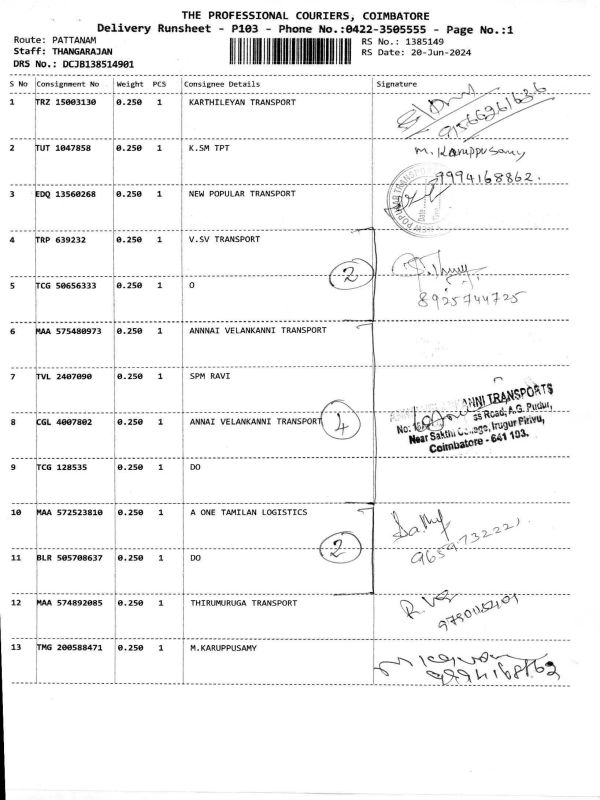 THE PROFESSIONAL COURIERS, COIMBATORE
Delivery Runsheet - P103 - Phone No.:0422-3505555 - Page No.:1
Route: PATTANAM
RS No.: 1385149
Staff: THANGARAJAN
RS Date: 20-Jun-2024
DRS No.: DCJB138514901
S No Consignment No Weight PCS Consignee Details Signature
1 TRZ 15003130 0.250 1 KARTHILEYAN TRANSPORT
9566261636
2 TUT 1047858 0.250 1 K.SM TPT M. Karuppusamy
9994168862.
3 EDQ 13560268 0.250 1 NEW POPULAR TRANSPORT
4 TRP 639232 0.250 1 V.SV TRANSPORT
2
5 TCG 50656333 0.250 1 O
8925744725
6 MAA 575480973 0.250 1 ANNNAI VELANKANNI TRANSPORT
7 TVL 2407090 0.250 1 SPM RAVI
ANNI TRANSPORTS
ss Road, A.G. Pudur,
8 CGL 4007802 0.250 1 ANNAI VELANKANNI TRANSPORT 4
Near Sakthi College, Irugur Pirivu,
Coimbatore - 641 103.
9 TCG 128535 0.250 1 DO
10 MAA 572523810 0.250 1 A ONE TAMILAN LOGISTICS
2
9659732221
11 BLR 505708637 0.250 1 DO
12 MAA 574892085 0.250 1 THIRUMURUGA TRANSPORT
13 TMG 200588471 0.250 1 M.KARUPPUSAMY